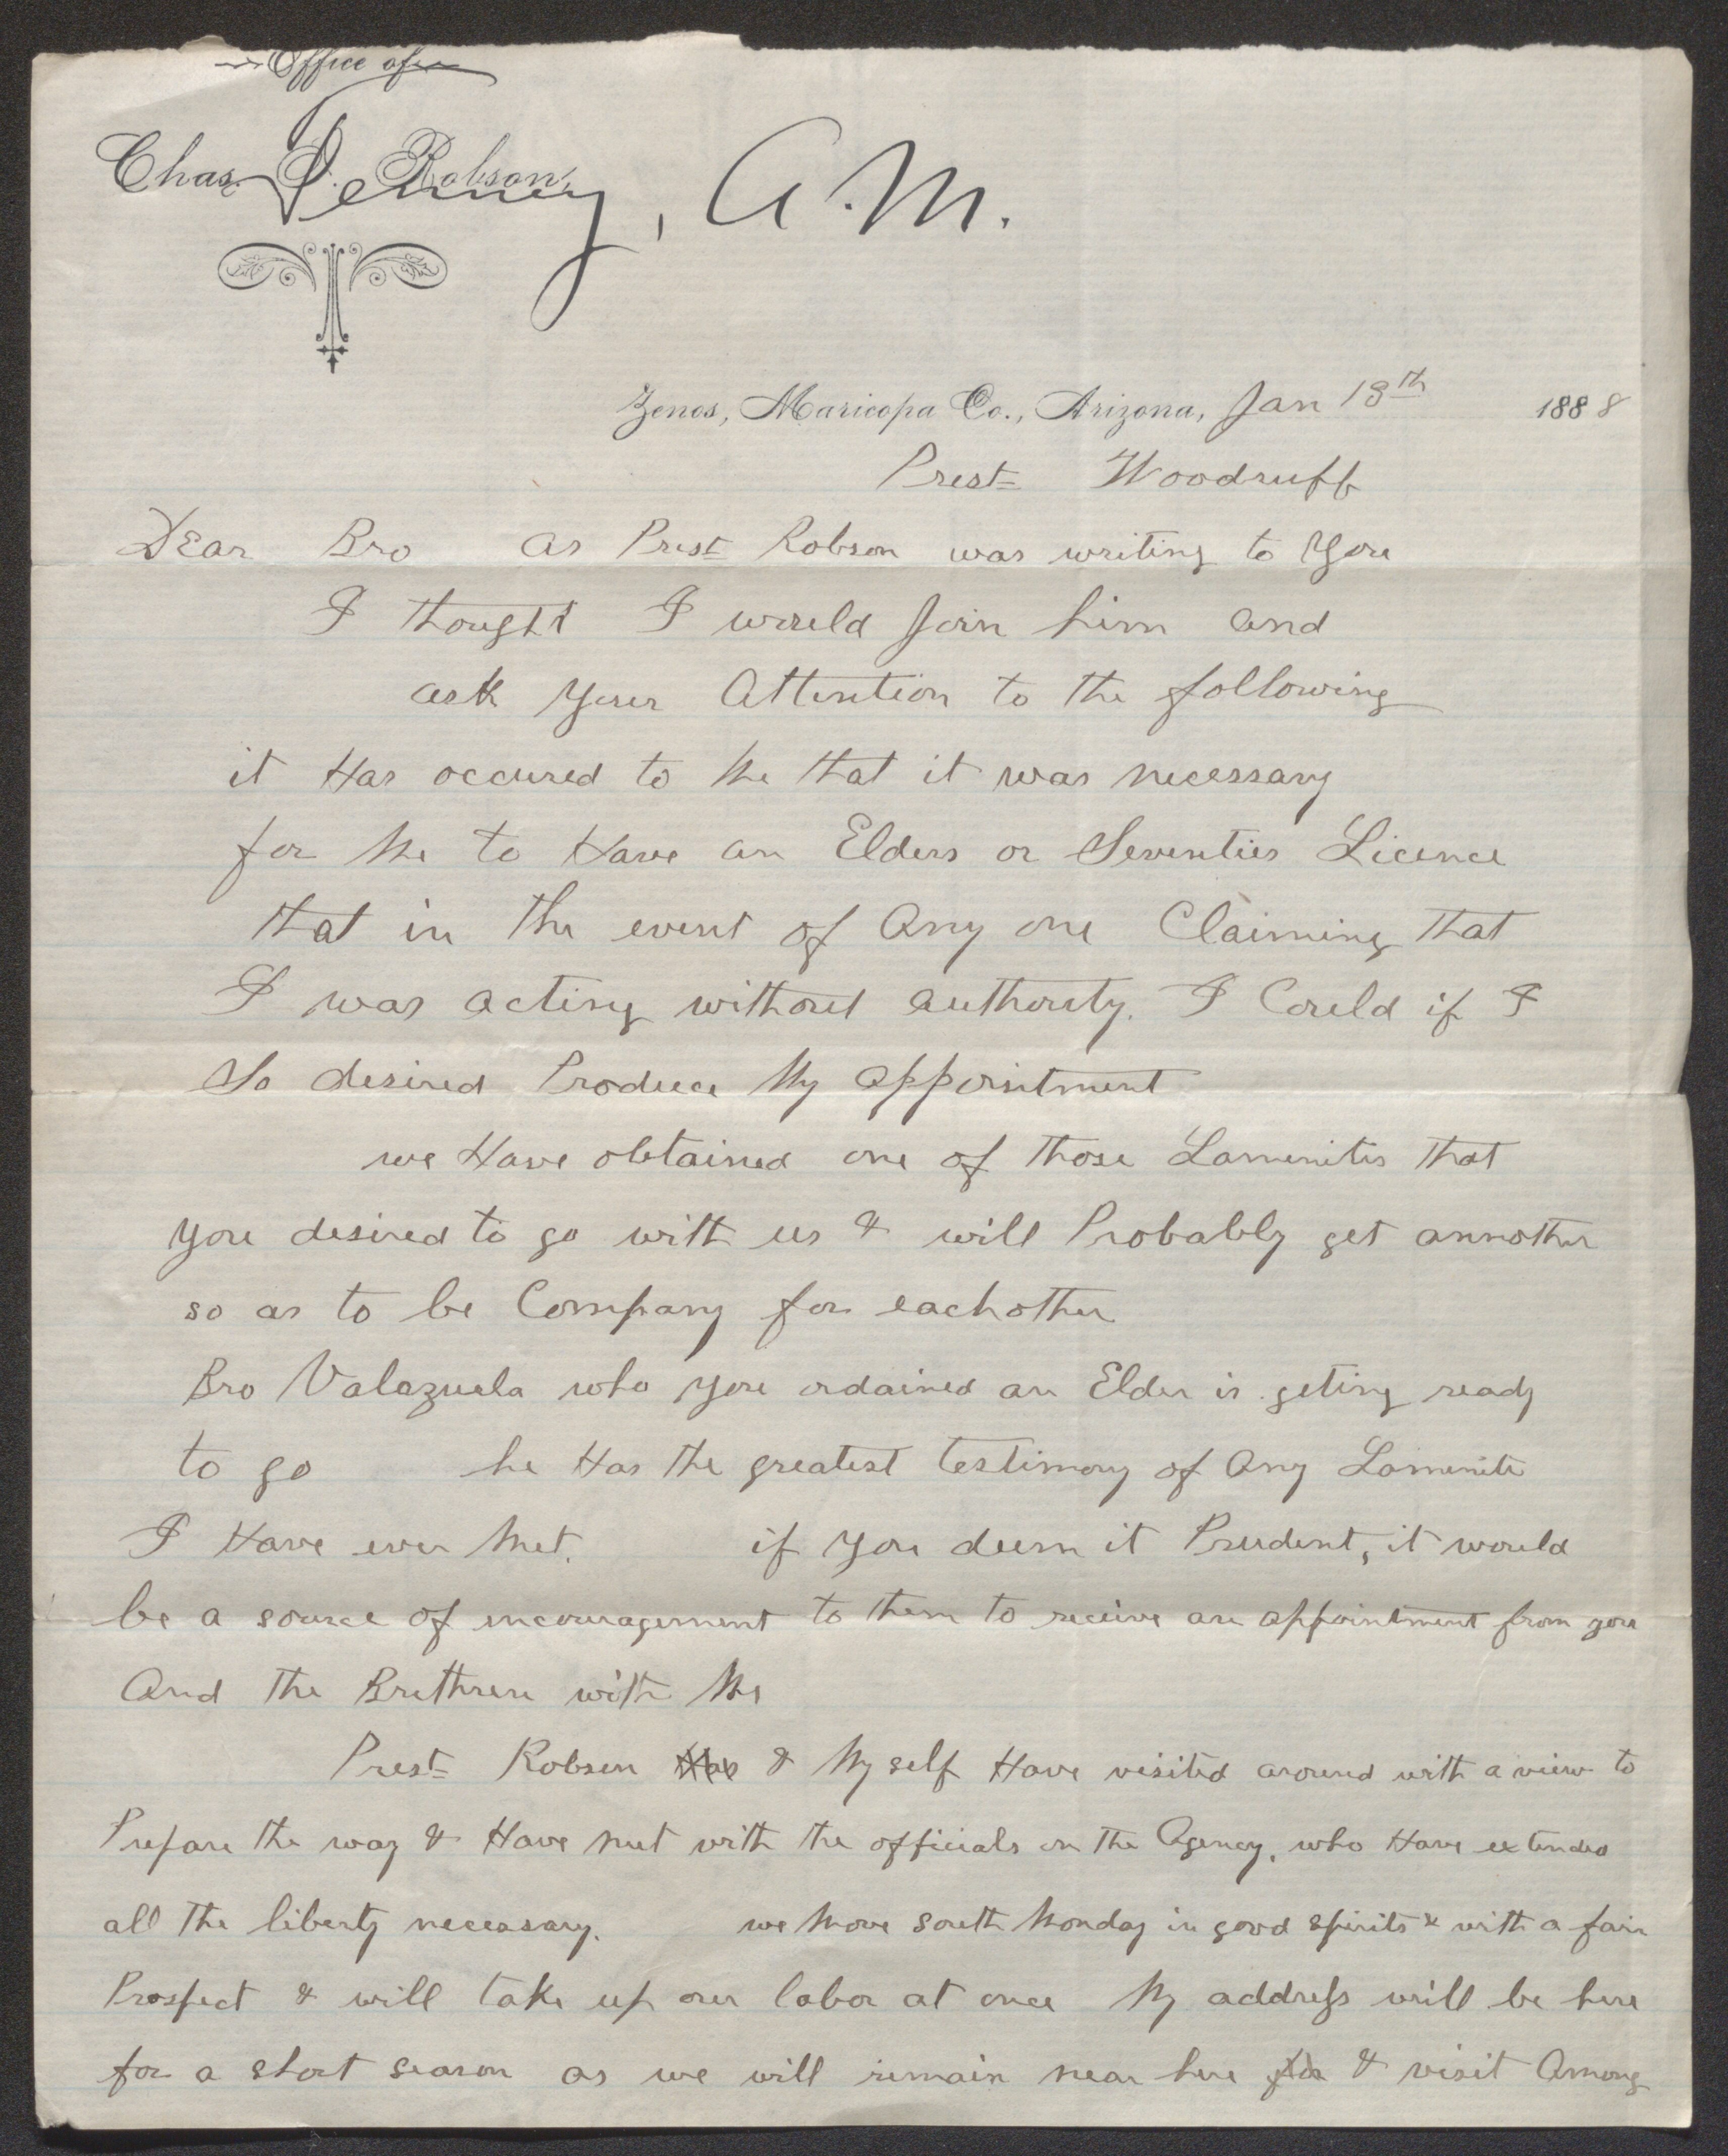 Office of
Chas. I. Robson,
Tenney, A. M.
Zenos, Maricopa Co., Arizona, Jan 13th 1888
Prest Woodruff
Dear Bro as Prest Robson was writing to you
I thought I would join him and
ask your Attention to the following
it Has occured to Me that it was necessary
for Me to Have an Elders or Seventies Licence
that in the event of Any one Claiming that
I was acting without authority. I Could if I
So desired Produce My appointment
we Have obtained one of those Lamenites that
you desired to go with us & will Probably get annother
so as to be Company for eachother
Bro Valazuela who you ordained an Elder is geting ready
to go he Has the greatest testimony of Any Lamenite
I Have ever Met. if you deem it Prudent, it would
be a source of encouragement to them to receive an appointment from you
And the Brethren with Me
Prest Robson Has & My self Have visited around with a view to
Prepare the way & Have met with the officials on the Agency, who Have extended
all the liberty necessary. we Move South Monday in good spirits & with a fair
Prospect & will take up our labor at once My address will be here
for a short season as we will remain near here & visit Among